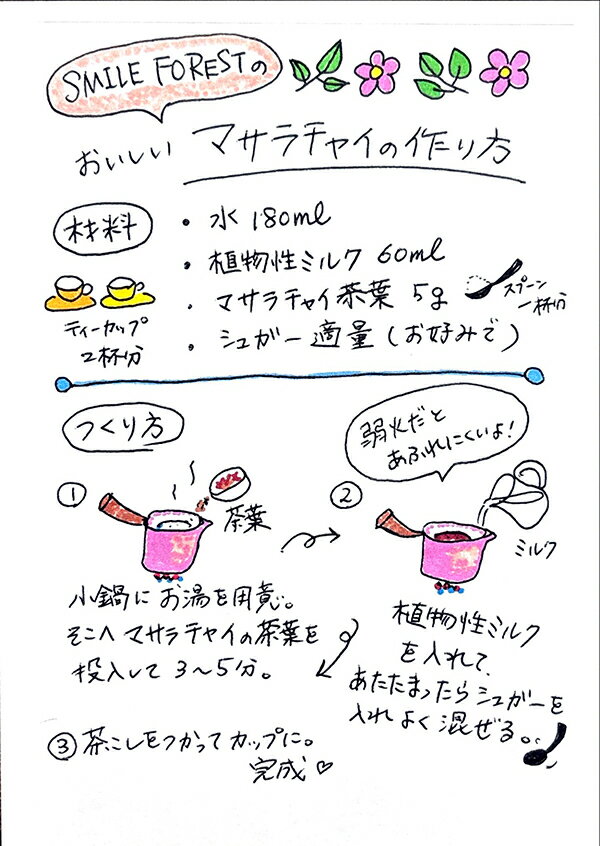 SMILE FORESTの
おいしい マサラチャイの作り方
材料
・水 180ml
・植物性ミルク 60ml
・マサラチャイ茶葉 5g
スプーン
一杯分
・シュガー適量(お好みで)
ティーカップ
2杯分
つくり方
①
茶葉
小鍋にお湯を用意。
そこへマサラチャイの茶葉を
投入して3〜5分。
弱火だと
あふれにくいよ!
②
ミルク
植物性ミルク
を入れて、
あたたまったらシュガーを
入れよく混ぜる。
③茶こしをつかってカップに。
完成♡